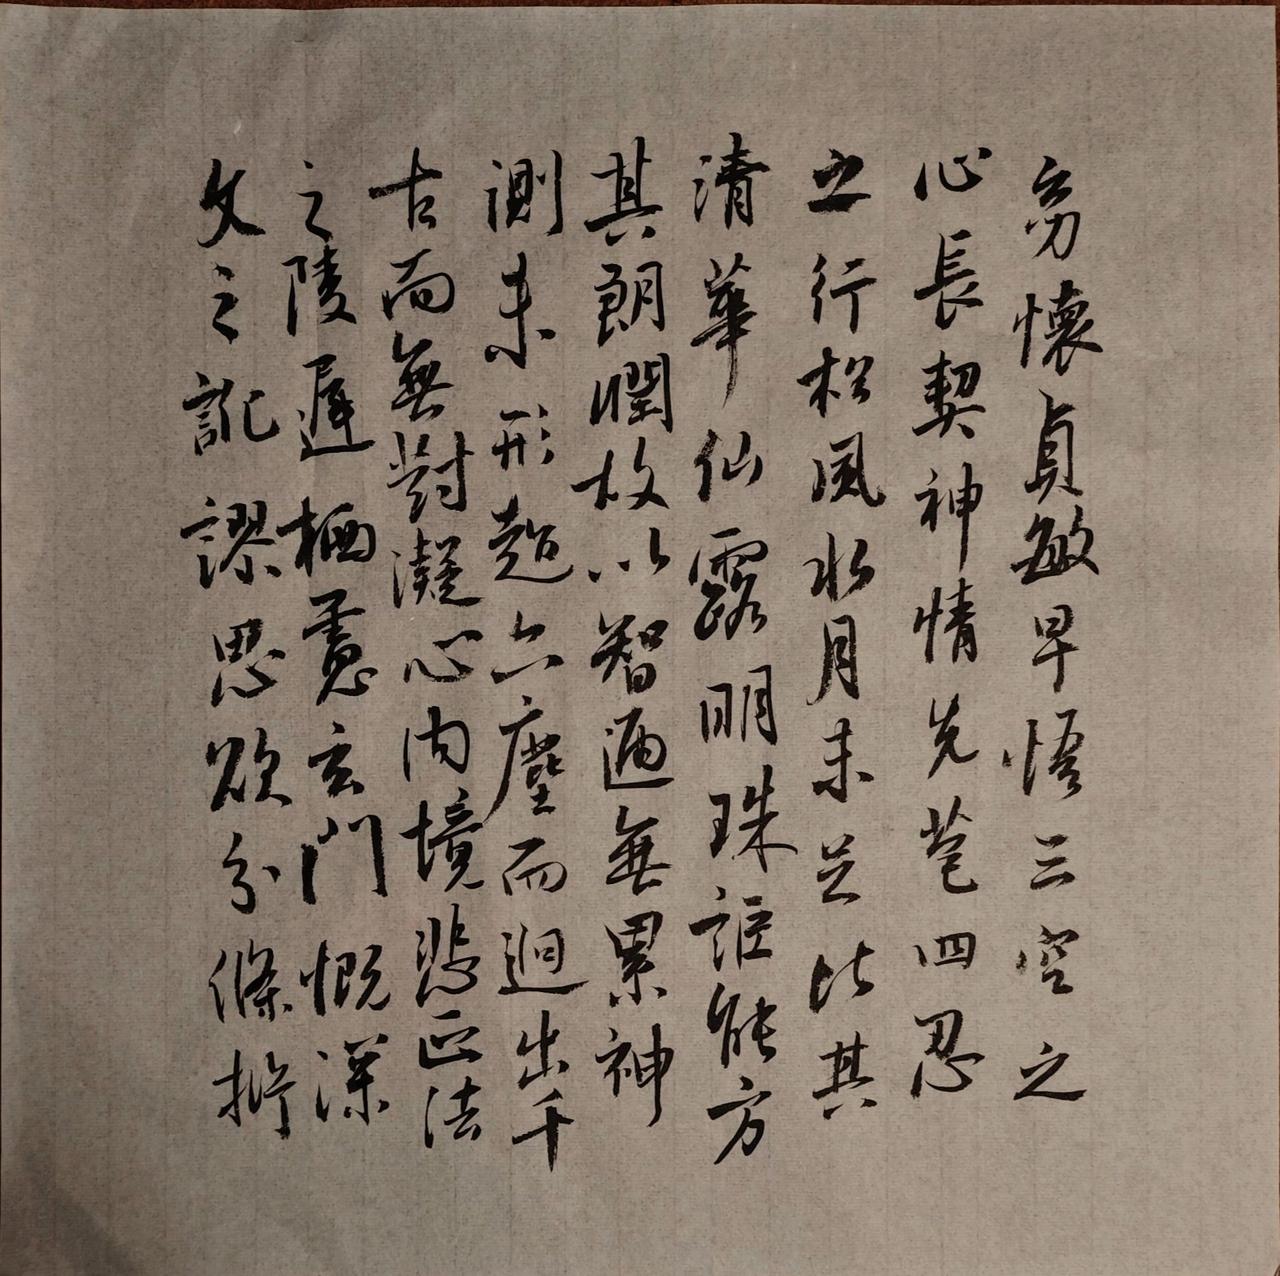 幼懷貞敏早悟三空之
心長契神情先苞四忍
之行松風水月未足比其
清華仙露明珠詎能方
其朗潤故以智通無累神
測未形超六塵而迥出千
古而無對凝心內境悲正法
之陵遲栖慮玄門慨深
文之訛謬思欲分條析